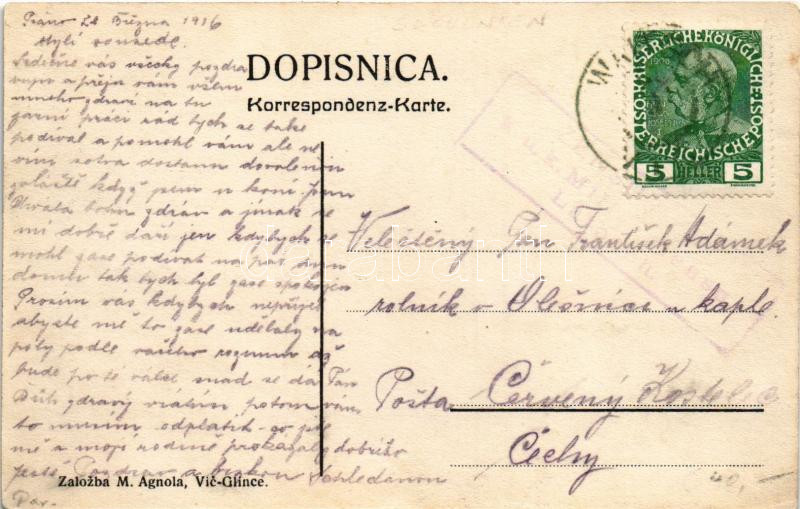 Psáno 22 Března 1916
Milý sousede.
Srdečně vás všecky pozdra
vuju a přeju vám všem
mnoho zdraví na tu
jarní práci rád bych se také
podíval a pomohl vám ale ne
vím sotva dostanu dovolenou
zvláště když jsem u koní. Jsem
chvála bohu zdráv a jinak se
mi dobře daří jen kdybych se
mohl zase podívat na pár dnů
domů tak bych byl zase spokojen
Prosím vás kdybych nepřijel
abyste mě to zase udělaly na
poly podle vašeho rozumu až
bude po té válce snad se dá Pán
Bůh zdravý vrátím potom vám
to musím odplatit co jste
mě a mojí rodině prokázaly dobrého
ještě Pozdrav a brzkou shledanou
DOPISNICA.
Korrespondenz-Karte.
KAISERLICHE KÖNIGLICHE
ÖSTERREICHISCHE POST
5 HELLER 5
Veleštěný Pán František Adámek
rolník v Olešnice u kaple
Pošta Červený Kostelec
Čechy
Založba M. Agnola, Vič-Glince.
40,-
darabanth